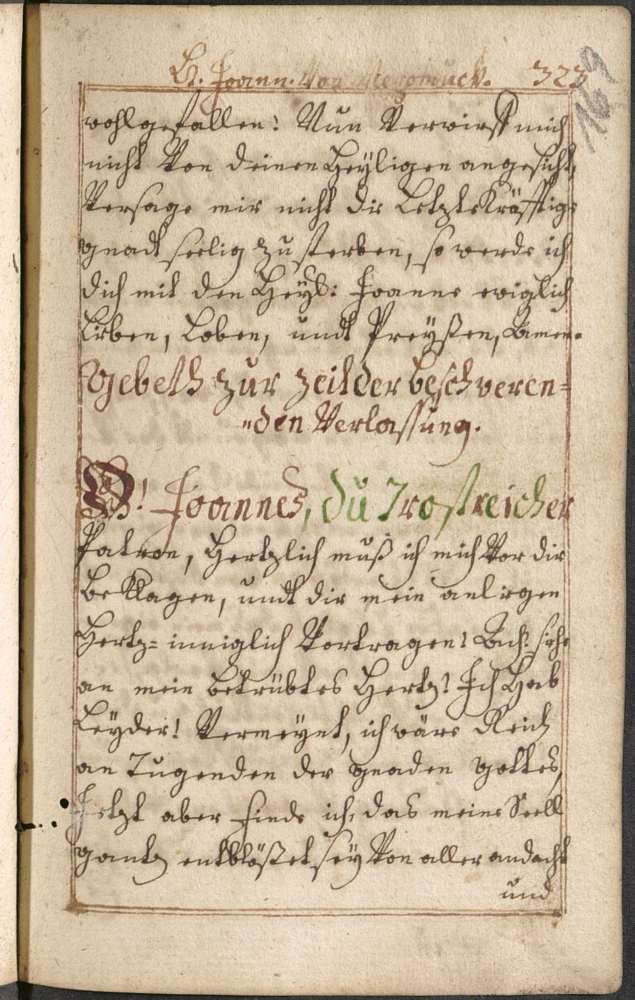 St. Joann. Von Nepomuck. 323
169
wohlgefallen! Nun Verwirff mich
nicht Von deinen Heyligen angesicht,
Versage mir nicht die Letzte Kräfftige
gnadt seelig zu sterben, so werde ich
dich mit den Heyl: Joanne ewiglich
Lieben, Loben, undt Preyßen, Amen.
Gebeth zur zeit der beschweren=
den Verlassung.
O! Joannes, du Trostreicher
Patron, Hertzlich muß ich mich Vor dir
beklagen, undt dir mein anliegen
Hertz=inniglich Vortragen! Ach: sihe
an mein betrübtes Hertz! Ich Hab
Leyder! Vermeynt, ich wäre Reich
an Tugenden der gnaden gottes,
Jetzt aber finde ich, das meine Seell
gantz entblößet sey Von aller andacht
und